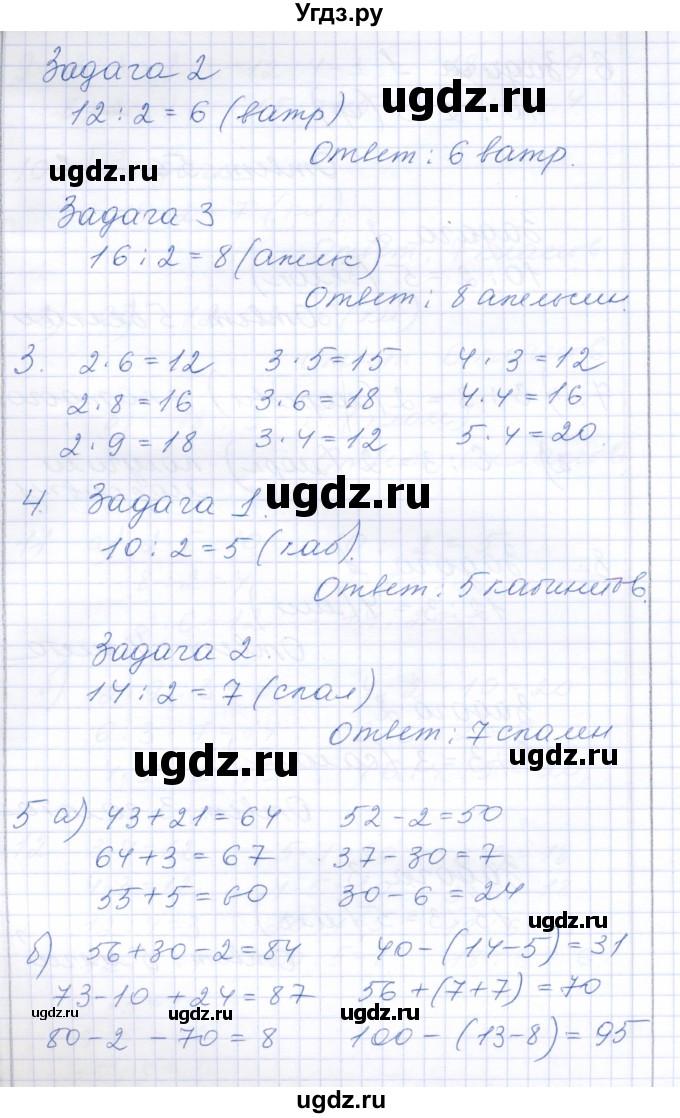 Угдз.ру
Задача 2
12 : 2 = 6 (ватр)
Ответ: 6 ватр.
Задача 3
16 : 2 = 8 (апельс)
Ответ: 8 апельсин.
3. 2 · 6 = 12 3 · 5 = 15 4 · 3 = 12
2 · 8 = 16 3 · 6 = 18 4 · 4 = 16
2 · 9 = 18 3 · 4 = 12 5 · 4 = 20
4. Задача 1.
10 : 2 = 5 (каб).
Ответ: 5 кабинетов.
Задача 2.
14 : 2 = 7 (спал)
Ответ: 7 спален
5 а) 43 + 21 = 64 52 - 2 = 50
64 + 3 = 67 37 - 30 = 7
55 + 5 = 60 30 - 6 = 24
б) 56 + 30 - 2 = 84 40 - (14 - 5) = 31
73 - 10 + 24 = 87 56 + (7 + 7) = 70
80 - 2 - 70 = 8 100 - (13 - 8) = 95
ugdz.ru
ugdz.ru
ugdz.ru
ugdz.ru
ugdz.ru
ugdz.ru
ugdz.ru
ugdz.ru
ugdz.ru